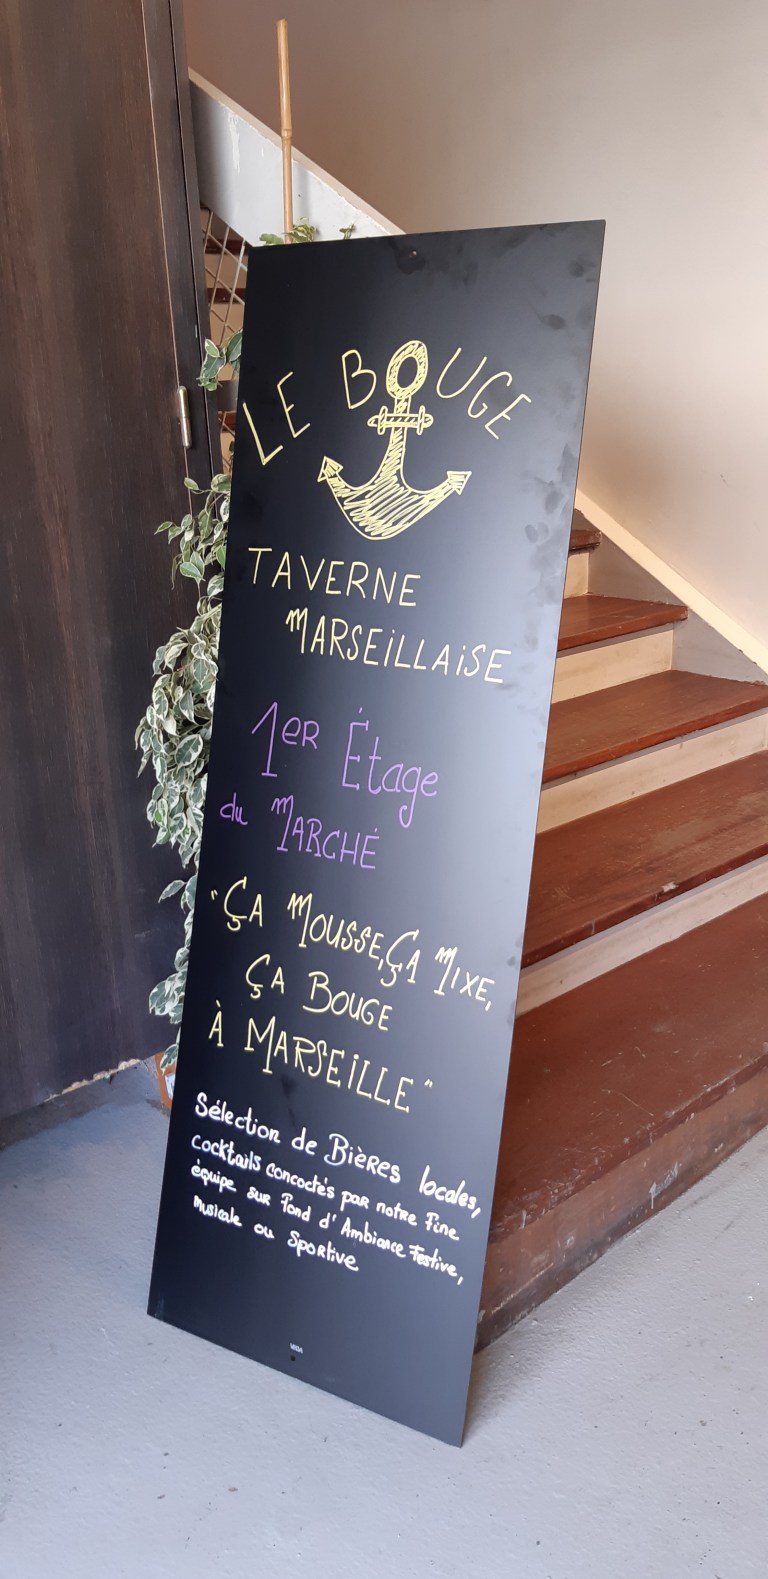 LE BOUGE
TAVERNE
MARSEILLAISE
1ER Étage
du MARCHÉ
"ÇA MOUSSE, ÇA MIXE,
ÇA BOUGE
À MARSEILLE"
Sélection de Bières locales,
cocktails concoctés par notre Fine
équipe sur Fond d'Ambiance Festive,
musicale ou Sportive